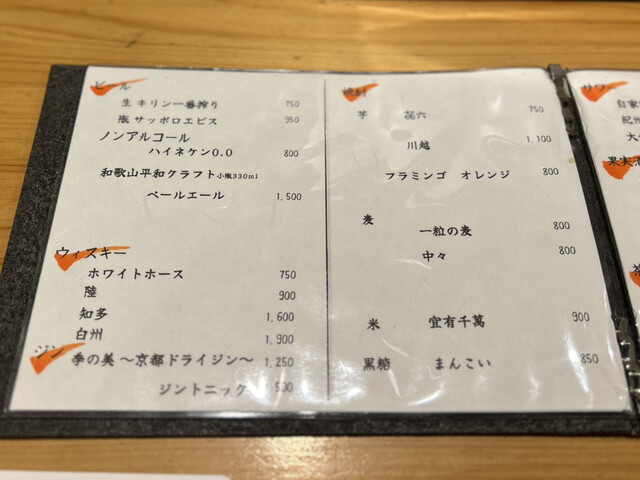 ビール
生 キリン一番搾り 750
瓶 サッポロエビス 950
ノンアルコール
ハイネケン0.0 800
和歌山平和クラフト 小瓶330ml
ペールエール 1,500
ウィスキー
ホワイトホース 750
陸 900
知多 1,600
白州 1,900
ジン
季の美 ～京都ドライジン～ 1,250
ジントニック 500
焼酎
芋 㐂六 750
川越 1,100
フラミンゴ オレンジ 800
麦
一粒の麦 800
中々 800
米 宜有千萬 900
黒糖 まんこい 850
サワー
自家
紀州
大
果実酒